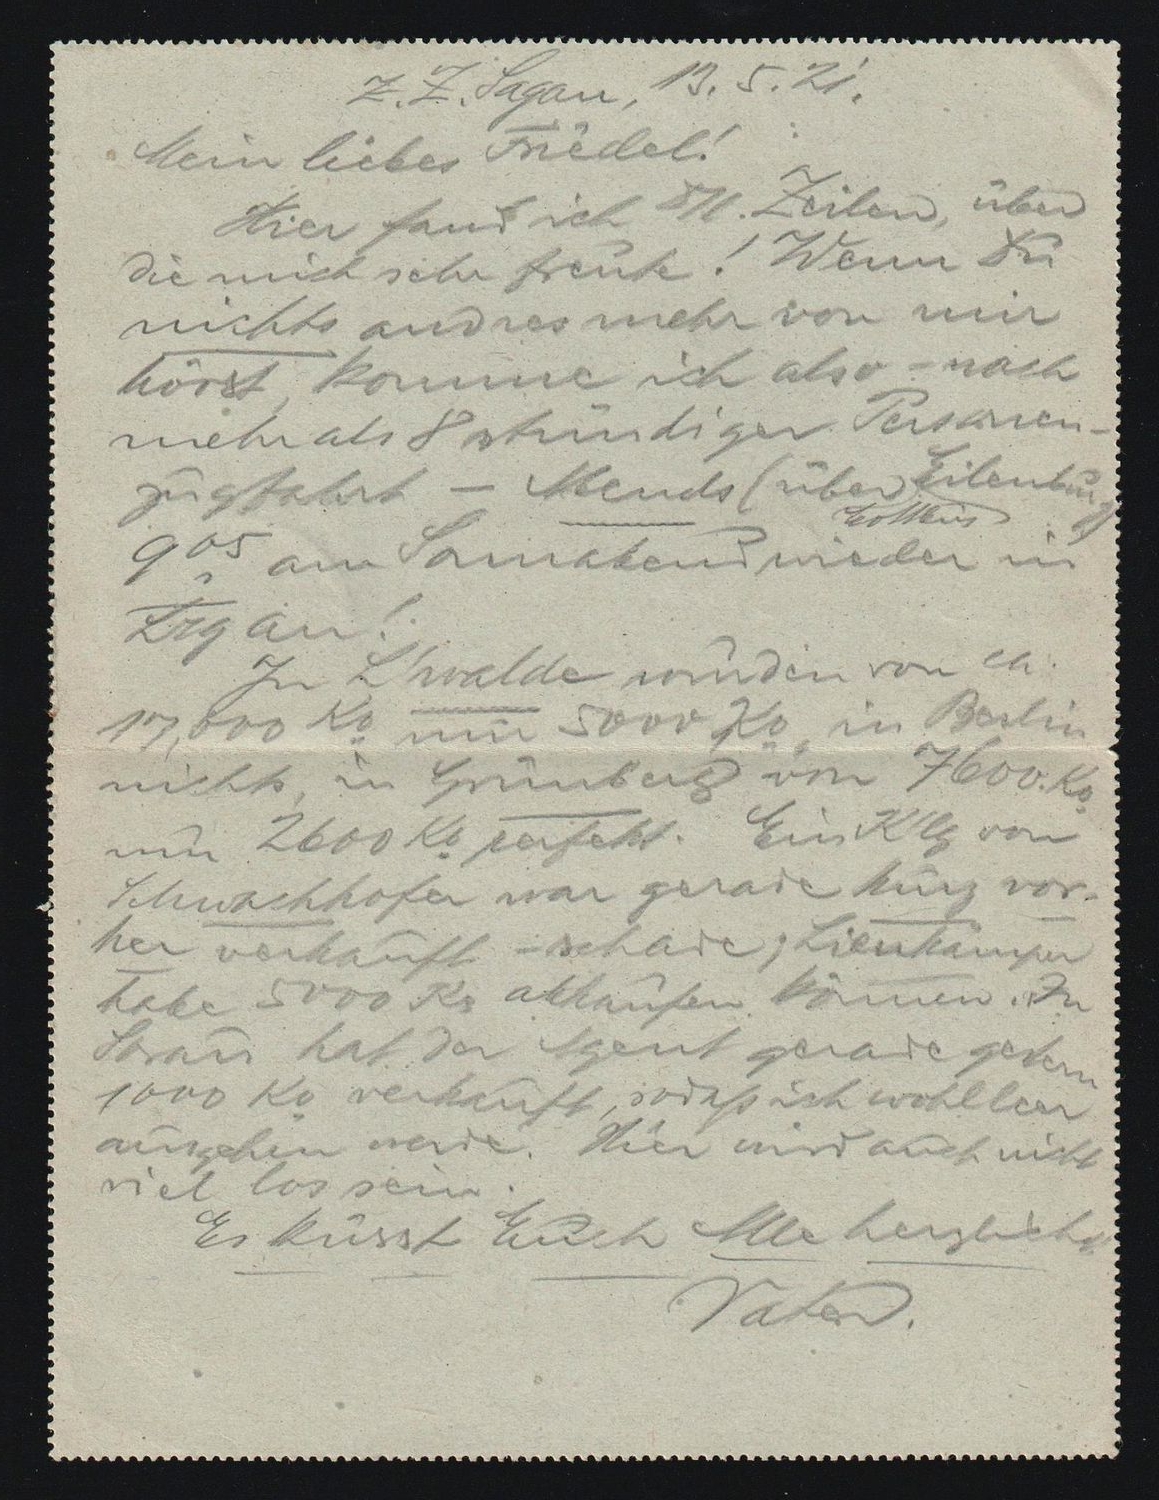 z. Z. Sagan, 13. 5. 21.
Mein liebes Friedel!
Hier fand ich Zeilen, über
die mich sehr freute! Wenn Du
nichts andres mehr von mir
hörst, komme ich also - nach
mehr als 8 stündiger Personen-
zugfahrt - Abends (über Eilenburg)
Cottbus
9 05 am Sonnabend wieder in
Trgau!
In L'walde wurden von ca.
17,000 Ko nur 5000 Ko, in Berlin
nichts, in Grünberg von 7600 Ko
nur 2600 Ko perfekt. Ein von
Schwachhofer war gerade kurz vor-
her verkauft - schade; Lienkämper
habe 5000 Ko abkaufen können. In
Sorau hat der Agent gerade gestern
1000 Ko verkauft, sodaß ich wohl leer
ausgehen werde. Hier wird auch nicht
viel los sein.
Es küsst Euch Alle herzlichst
Vater.